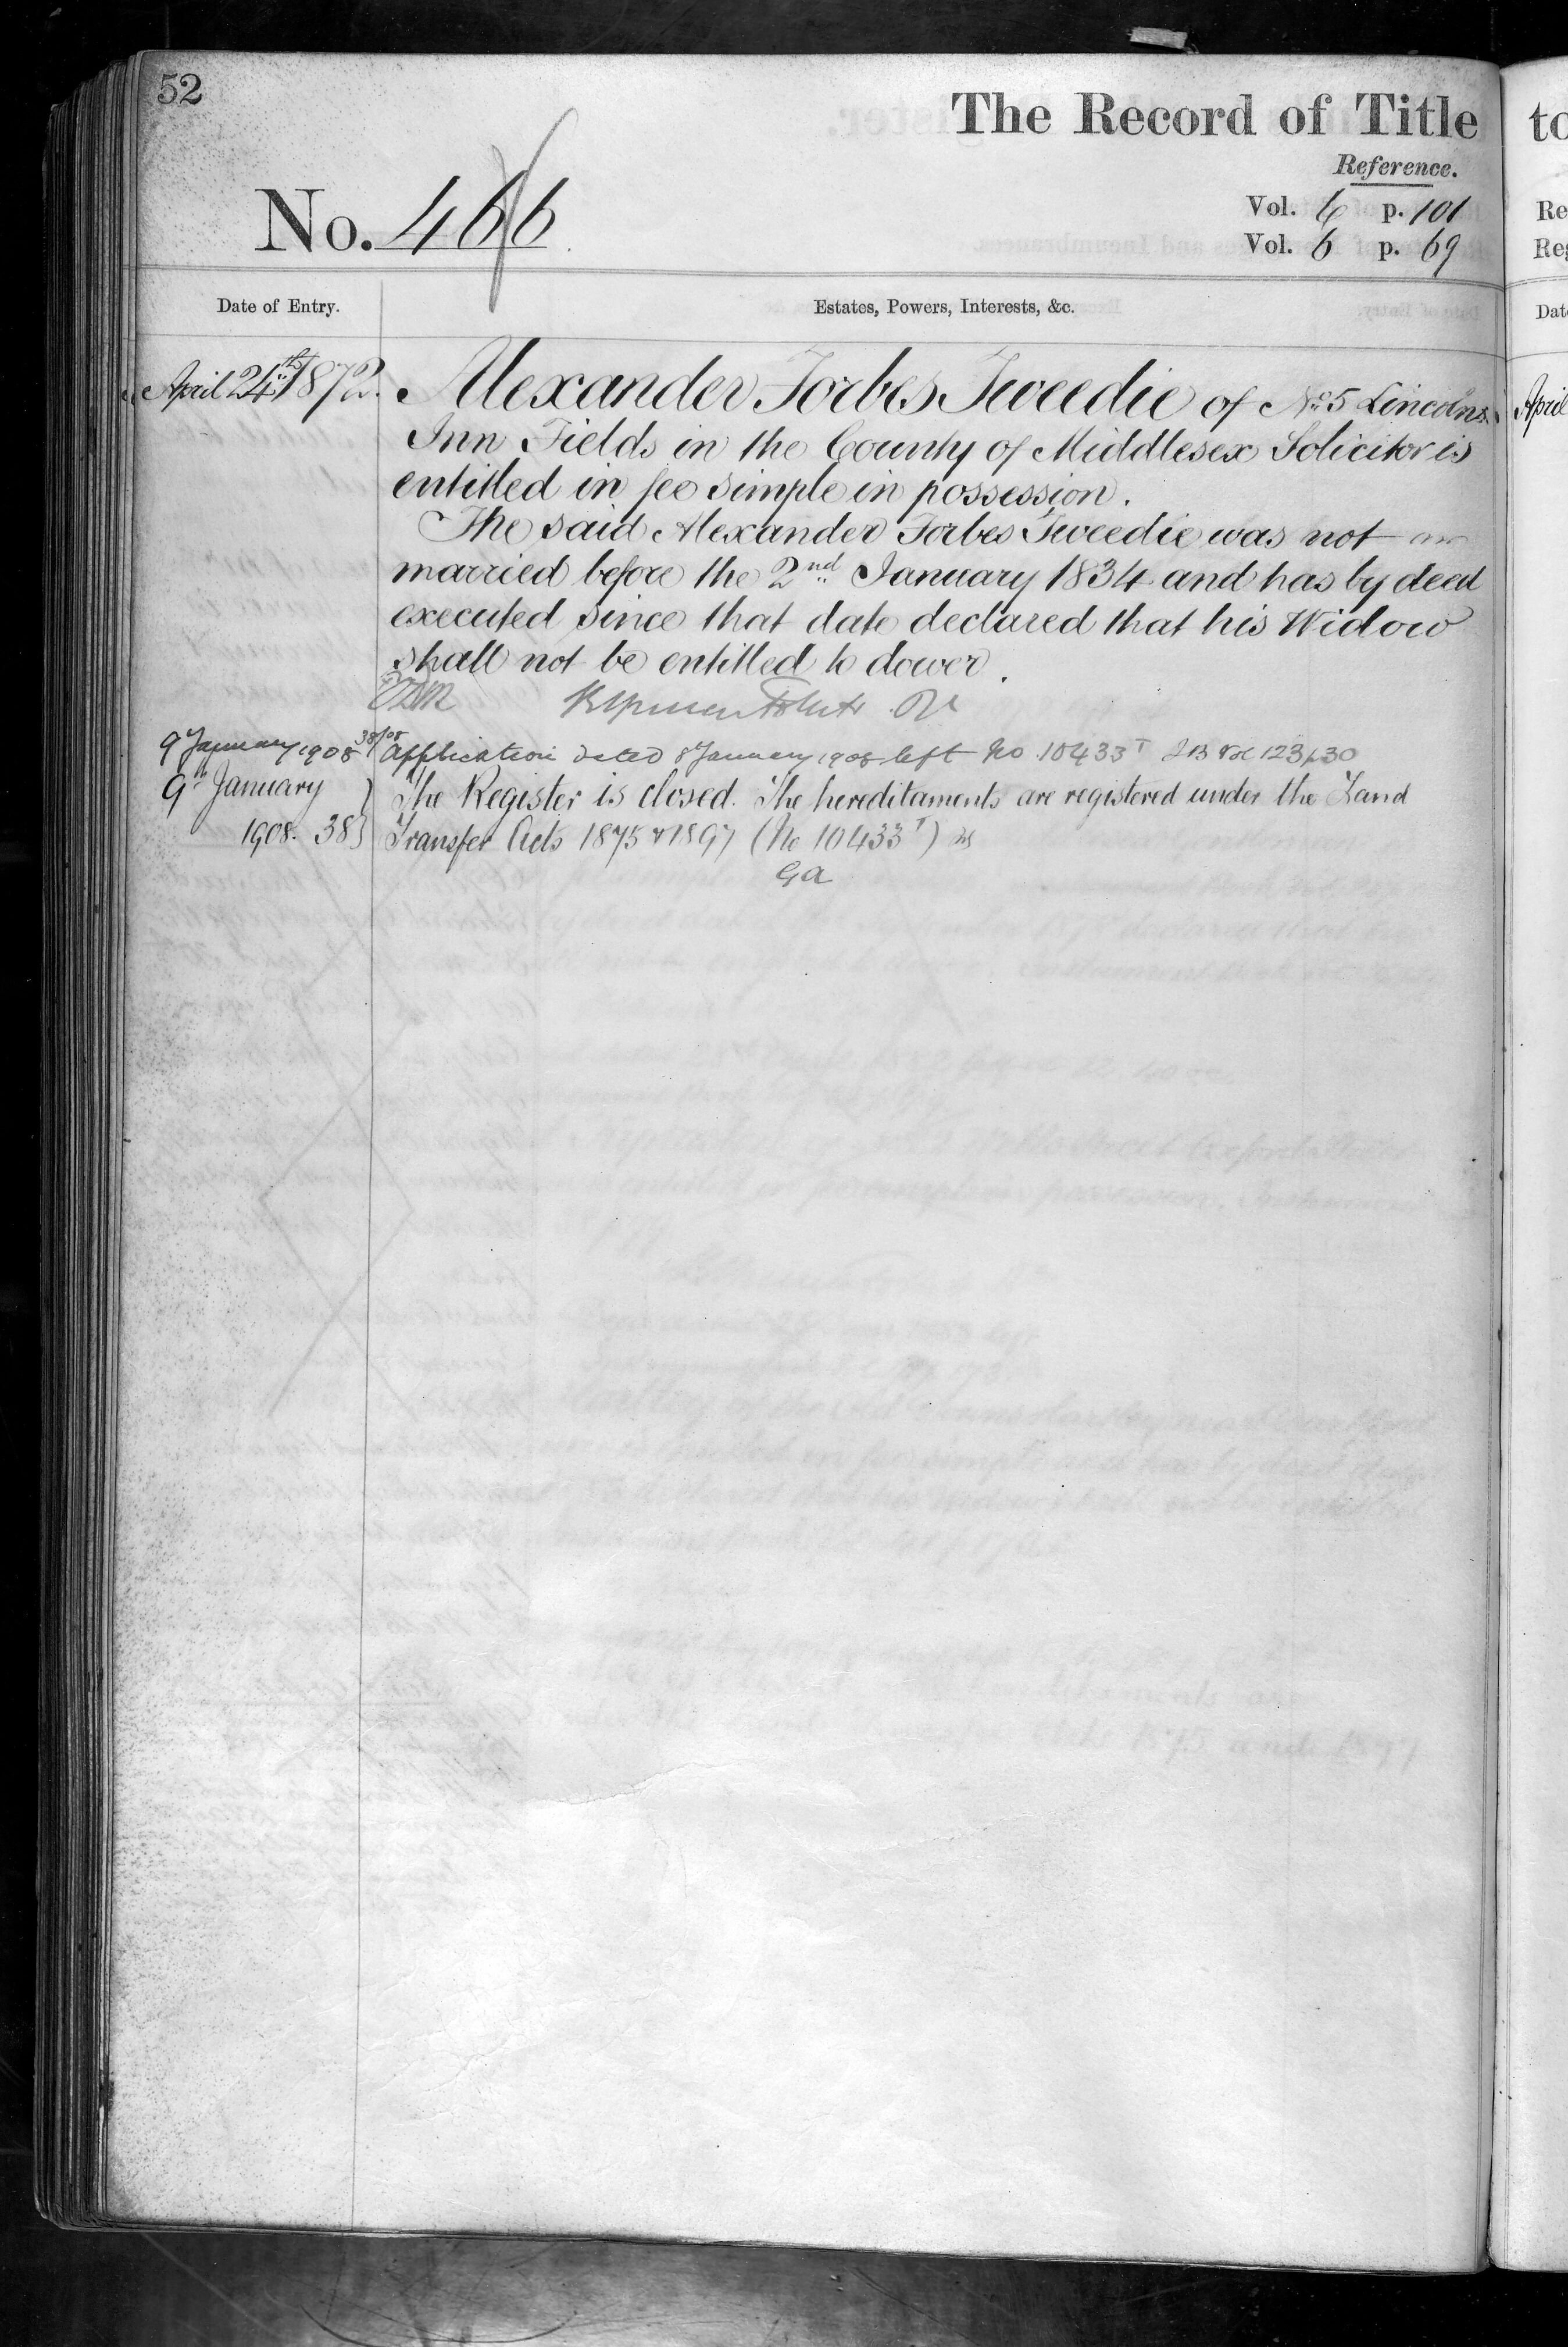 52
The Record of Title
Reference.
No. 466
Vol. 6 p. 101
Vol. 6 p. 69
Date of Entry.
Estates, Powers, Interests, &c.
April 24th 1872. Alexander Forbes Tweedie of No. 5 Lincolns
Inn Fields in the County of Middlesex Solicitor is
entitled in fee simple in possession.
The said Alexander Forbes Tweedie was not
married before the 2nd January 1834 and has by deed
executed since that date declared that his Widow
shall not be entitled to dower.
9 January 1908 38/08 Application dated 8 January 1908 left No 10433T Vol 123 p 30
9th January } The Register is closed. The hereditaments are registered under the Land
1908. 38 } Transfer Acts 1875 & 1897 (No 10433T)
GA
to
Re
Reg
Dat
April